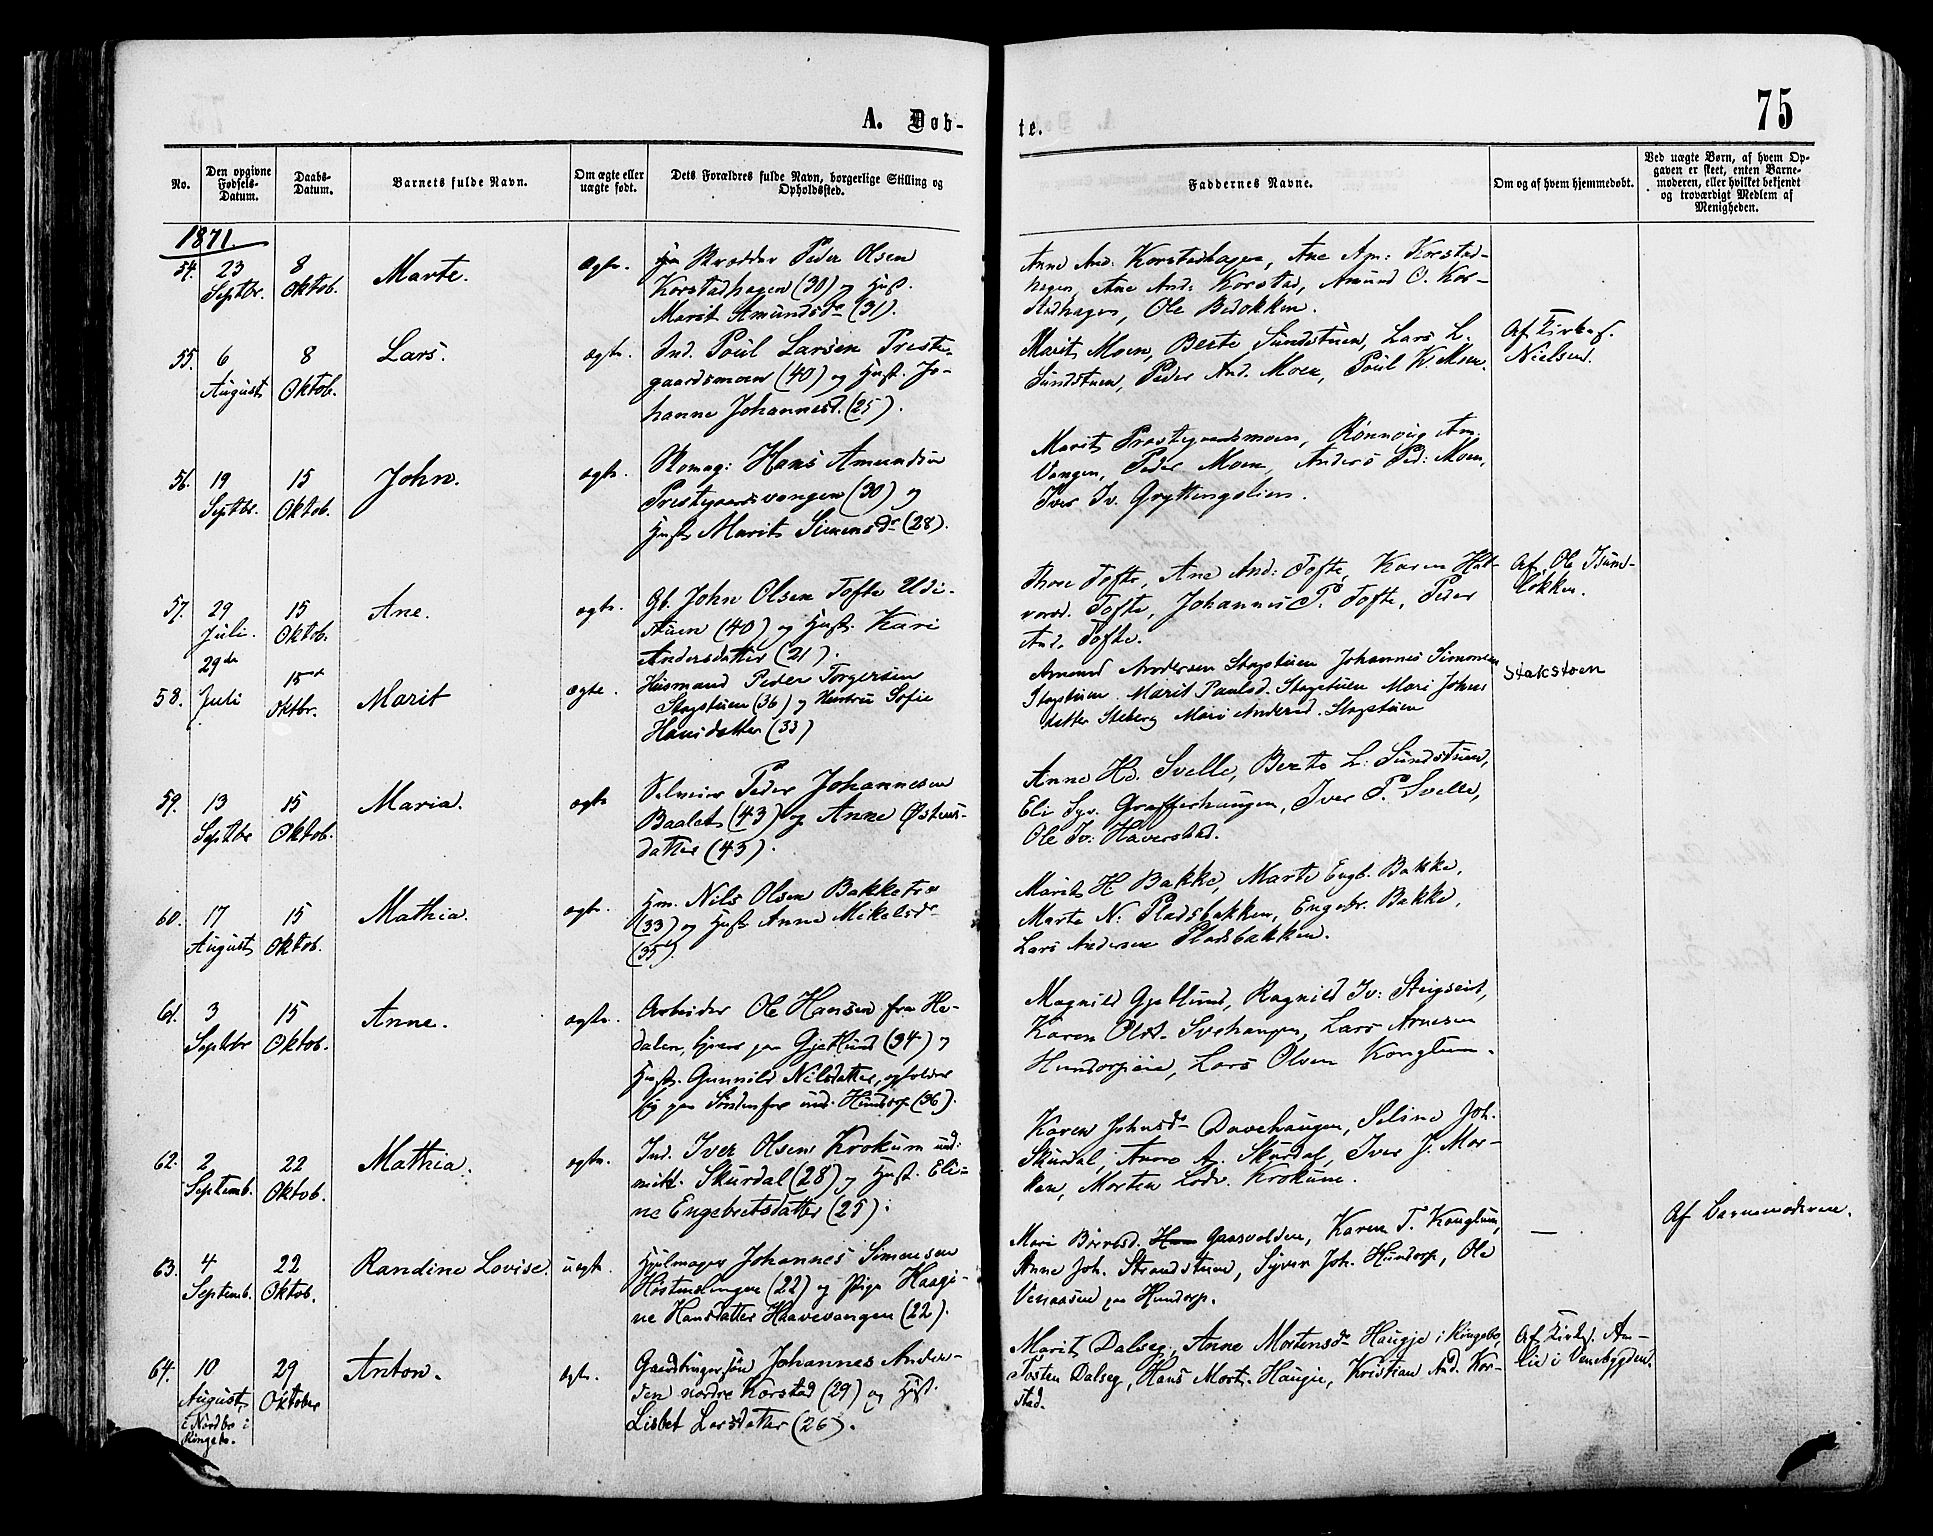 A. Døb-
te.
75
No.
Den opgivne Fødsels-Datum.
Daabs-Datum.
Barnets fulde Navn.
Om ægte eller uægte født.
Dets Forældres fulde Navn, borgerlige Stilling og Opholdssted.
Faddernes Navne.
Om og af hvem hjemmedøbt.
Ved uægte Børn, af hvem Opgaven er skeet, enten Barnemoderen, eller hvilket bekjendt og troværdigt Medlem af Menigheden.
1871.
54. 23 Septbr. 8 Oktob. Marte. ægte.
Skrædder Peder Olsen
Korstadhagen (30) og Hust.
Marit Amundsdr (31).
Anne And. Korstadhagen, Ane Am: Korstad-
hagen, Ane And: Korstad, Amund O. Kor-
stadhagen, Ole Bedokken.
55. 6 August 8 Oktob. Lars. ægte.
Ind. Poul Larsen Preste-
gaardsmoen (40) og Hust. Jo-
hanne Johannesd. (25).
Marit Moen, Berte Sundstuen, Lars L.
Sundstuen, Peder And. Moen, Poul K. Moen.
Af Kirkes.
Nielsen.
56. 19 Septbr. 15 Oktob. John. ægte.
Skomag: Hans Amundsen
Prestegaardsvangen (30) og
Hust. Marit Simensdr (28).
Marit Prestegaardsmoen, Rønnoug Am.
Vangen, Peder Moen, Anders Ped: Moen,
Iver Iv. Gryttingslien.
57. 29 Juli. 15 Oktob. Ane. ægte.
Gb. John Olsen Tofte Udi-
stuen (40) og Hust. Kari
Andersdatter (21).
Thore Tofte, Ane And: Tofte, Karen Hal-
vord. Tofte, Johannes P. Tofte, Peder
And. Tofte.
Af Ole Isum-
løkken.
58. 29de Juli 15de Oktbr. Marit ægte.
Husmand Peder Torgersen
Stagstuen (36) og Hustru Sofie
Hansdatter (33)
Amund Andersen Stagstuen Johannes Simonsen
Stagstuen. Marit Paulsd. Stagstuen Mari Johns
datter Steberg Mari Andersd. Stagstuen
Stakstoen
59. 13 Septbr 15 Oktob. Maria. ægte
Selveier Peder Johannesen
Baalet (43) og Anne Østens-
datter (43).
Anne Hd. Svelle, Berte L: Sundstuen,
Eli Syv. Grafferhaugen, Iver P. Svelle,
Ole Iv: Haverstad.
60. 17 August 15 Oktob. Mathia. ægte.
Hm. Nils Olsen Bakketrø
(33) og Hust. Anne Mikelsdr
(35).
Marit H. Bakke, Marte Engb. Bakke,
Marte N: Pladsbakken, Engebr. Bakke,
Lars Andersen Pladsbakken.
61. 3 Septbr 15 Oktob. Anne. ægte.
Arbeider Ole Hansen fra He-
dalen, tjener paa Gjetlund (34) og
Hust. Gunnild Nilsdatter, opholder
sig paa Sordenfor und. Hundorp (36).
Magnild Gjetlund, Ragnild Iv: Steigseit,
Karen Olsd. Svehaugen, Lars Arnesen
Hundorpeie, Lars Olsen Konglun.
62. 2 Septemb. 22 Oktob. Mathia. ægte.
Ind. Iver Olsen Krokum und:
midt. Skurdal (28) og Hust. Eli-
ne Engebretsdatter (25).
Karen Johnsdr Davehaugen, Seline Joh.
Skurdal, Anne A. Skurdal, Iver J. Mor-
ken, Morten Lodv. Krokum.
63. 4 Septemb. 22 Oktob. Randine Lovise. uægte.
Hjulmager Johannes Simensen
Høstmælingen (22) og Pige Haagi-
ne Hansdatter Haavevangen (22).
Mari Børresd. Gaasvolden, Karen T. Konglum,
Anne Joh. Strandstuen, Syver Joh. Hundorp, Ole
Venaasen paa Hundorp.
—
Af Barnemoderen.
64. 10 August, i Nordbr i Ringebo. 29 Oktober Anton. ægte.
Gaardbrugersøn Johannes Ander-
sen nordre Korstad (29) og Hust.
Lisbet Larsdatter (26).
Marit Dalseg, Anne Mortensdr Haugje i Ringebo,
Tosten Dalseg, Hans Mort. Haugje, Kristian And. Kor-
stad.
Af Kirkes. An-
lie i Venebygden.